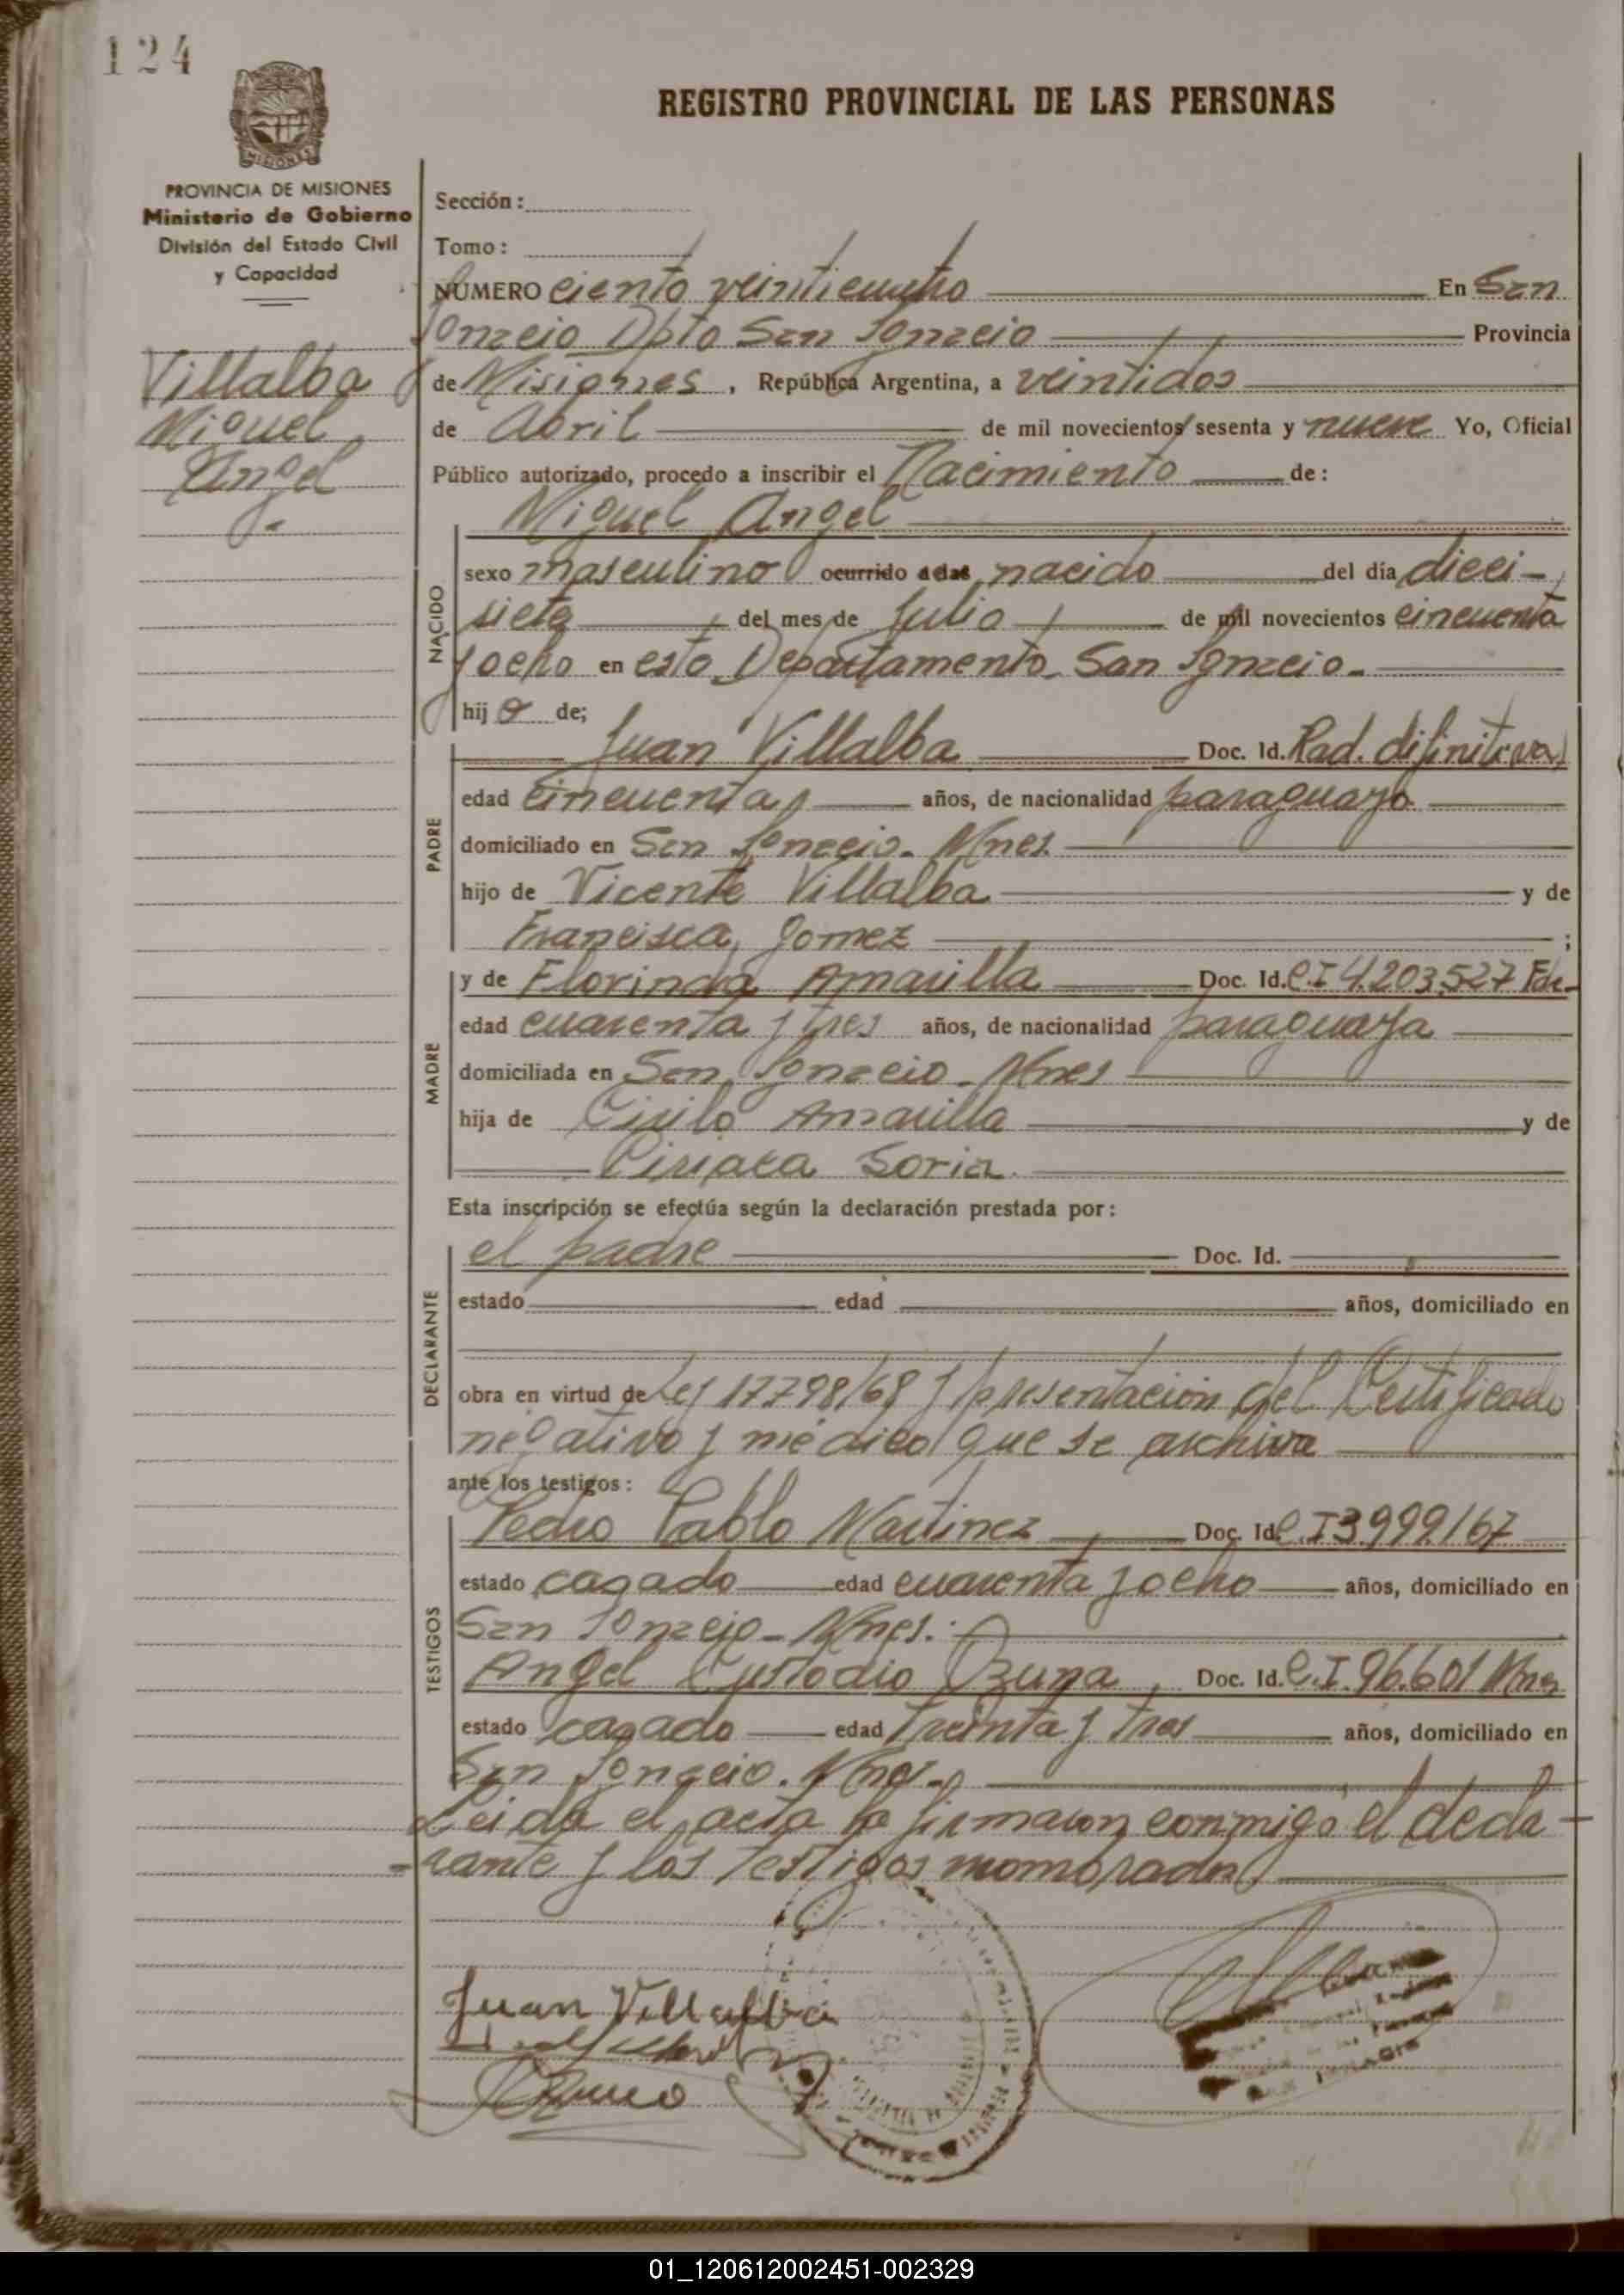 124
REGISTRO PROVINCIAL DE LAS PERSONAS
MISIONES
PROVINCIA DE MISIONES
Ministerio de Gobierno
División del Estado Civil
y Capacidad
Villalba
Miguel
Angel
Sección:
Tomo:
NÚMERO ciento veinticuatro En San
Ignacio Dpto San Ignacio Provincia
de Misiones, República Argentina, a veintidos
de Abril de mil novecientos sesenta y nueve Yo, Oficial
Público autorizado, procedo a inscribir el Nacimiento de:
Miguel Angel
NACIDO
sexo masculino ocurrido a las nacido del día dieci-
siete del mes de Julio de mil novecientos cincuenta
y ocho en esto Departamento San Ignacio.
hijo de;
PADRE
Juan Villalba Doc. Id. Rad. difinitiva
edad cincuenta años, de nacionalidad paraguayo
domiciliado en San Ignacio. Mnes.
hijo de Vicente Villalba y de
Francisca Gomez ;
MADRE
y de Florinda Amarilla Doc. Id. C.I 4.203.527 Fde.
edad cuarenta y tres años, de nacionalidad paraguaya
domiciliada en San Ignacio - Mnes
hija de Cirilo Amarilla y de
Ciriaca Soria.
Esta inscripción se efectúa según la declaración prestada por:
DECLARANTE
el padre Doc. Id.
estado edad años, domiciliado en
obra en virtud de Ley 17.798/68 y presentación del Certificado
negativo y médico que se archiva
ante los testigos:
TESTIGOS
Pedro Pablo Martinez Doc. Id. C.I 3.999.167
estado casado edad cuarenta y ocho años, domiciliado en
San Ignacio - Mnes.
Angel Custodio Ozuna Doc. Id. C.I. 96.601 Mnes
estado casado edad treinta y tres años, domiciliado en
San Ignacio. Mnes.
Leida el acta la firmaron conmigo el decla-
-rante y los testigos mombrados
Juan Villalba
01_120612002451-002329